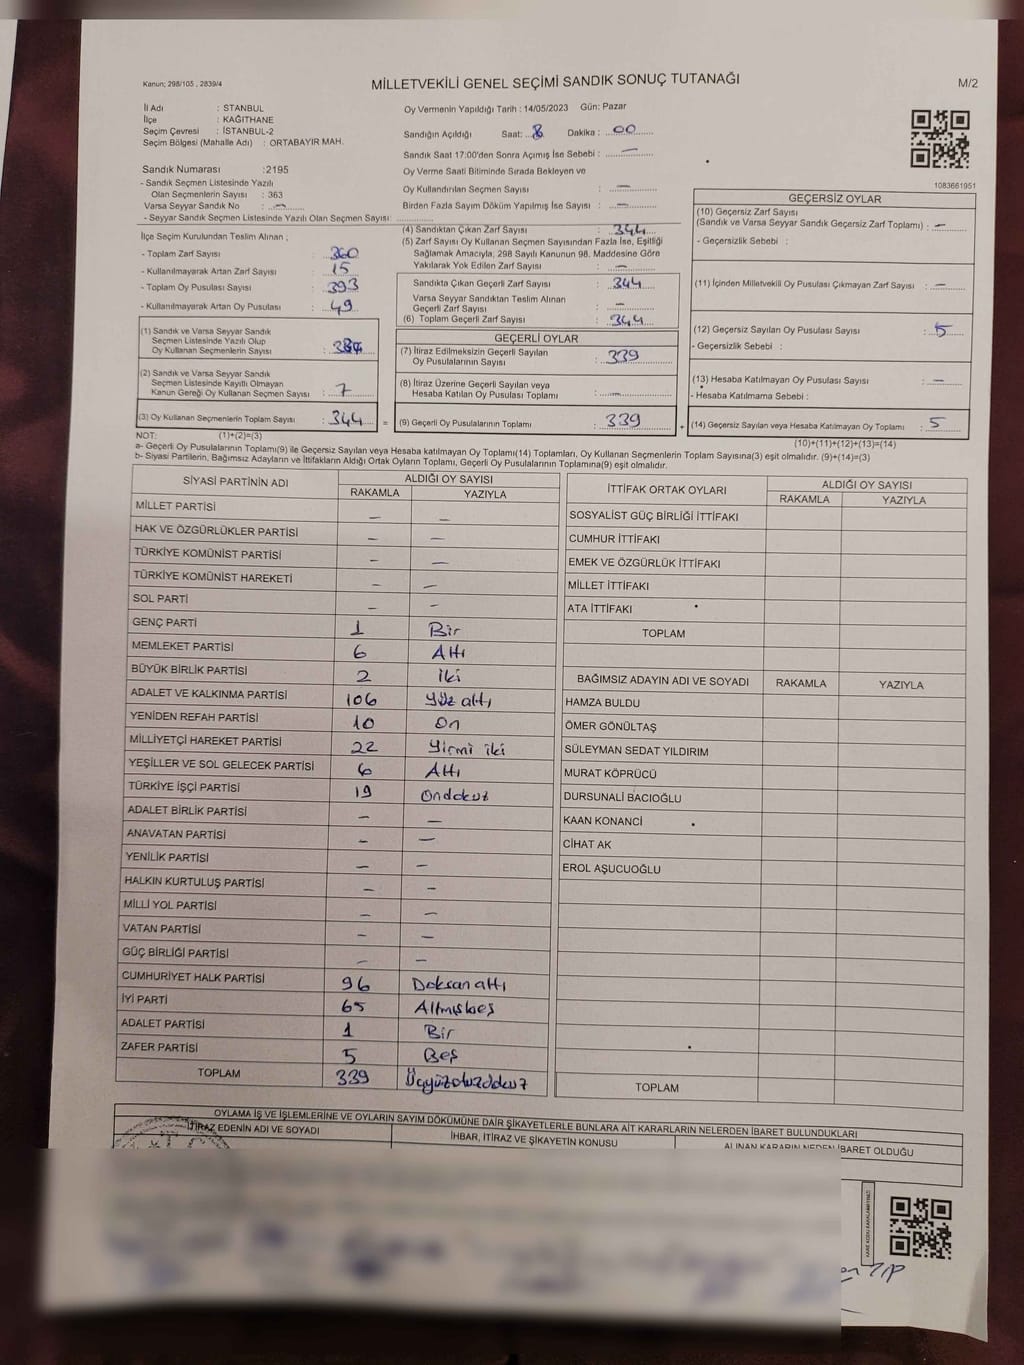 Kanun; 298/105 , 2839/4
MİLLETVEKİLİ GENEL SEÇİMİ SANDIK SONUÇ TUTANAĞI
M/2
İl Adı : STANBUL
İlçe : KAĞITHANE
Seçim Çevresi : İSTANBUL-2
Seçim Bölgesi (Mahalle Adı) : ORTABAYIR MAH.
Oy Vermenin Yapıldığı Tarih : 14/05/2023 Gün: Pazar
Sandığın Açıldığı Saat: 8 Dakika : 00
Sandık Saat 17:00'den Sonra Açımış İse Sebebi : —
Oy Verme Saati Bitiminde Sırada Bekleyen ve
Oy Kullandırılan Seçmen Sayısı : —
Birden Fazla Sayım Döküm Yapılmış İse Sayısı : —
1083661951
Sandık Numarası :2195
- Sandık Seçmen Listesinde Yazılı
Olan Seçmenlerin Sayısı : 363
Varsa Seyyar Sandık No : —
- Seyyar Sandık Seçmen Listesinde Yazılı Olan Seçmen Sayısı :
İlçe Seçim Kurulundan Teslim Alınan ;
- Toplam Zarf Sayısı : 360
- Kullanılmayarak Artan Zarf Sayısı : 15
- Toplam Oy Pusulası Sayısı : 393
- Kullanılmayarak Artan Oy Pusulası : 49
(1) Sandık ve Varsa Seyyar Sandık
Seçmen Listesinde Yazılı Olup
Oy Kullanan Seçmenlerin Sayısı :
(2) Sandık ve Varsa Seyyar Sandık
Seçmen Listesinde Kayıtlı Olmayan
Kanun Gereği Oy Kullanan Seçmen Sayısı : 7
(3) Oy Kullanan Seçmenlerin Toplam Sayısı : 344 =
(1)+(2)=(3)
(4) Sandıktan Çıkan Zarf Sayısı : 344
(5) Zarf Sayısı Oy Kullanan Seçmen Sayısından Fazla İse, Eşitliği
Sağlamak Amacıyla, 298 Sayılı Kanunun 98. Maddesine Göre
Yakılarak Yok Edilen Zarf Sayısı : —
Sandıkta Çıkan Geçerli Zarf Sayısı : 344
Varsa Seyyar Sandıktan Teslim Alınan
Geçerli Zarf Sayısı : —
(6) Toplam Geçerli Zarf Sayısı : 344
GEÇERLİ OYLAR
(7) İtiraz Edilmeksizin Geçerli Sayılan
Oy Pusulalarının Sayısı : 339
(8) İtiraz Üzerine Geçerli Sayılan veya
Hesaba Katılan Oy Pusulası Toplamı : —
(9) Geçerli Oy Pusulalarının Toplamı : 339 +
GEÇERSİZ OYLAR
(10) Geçersiz Zarf Sayısı
(Sandık ve Varsa Seyyar Sandık Geçersiz Zarf Toplamı) : —
- Geçersizlik Sebebi :
(11) İçinden Milletvekili Oy Pusulası Çıkmayan Zarf Sayısı : —
(12) Geçersiz Sayılan Oy Pusulası Sayısı : 5
- Geçersizlik Sebebi :
(13) Hesaba Katılmayan Oy Pusulası Sayısı : —
- Hesaba Katılmama Sebebi :
(14) Geçersiz Sayılan veya Hesaba Katılmayan Oy Toplamı : 5
(10)+(11)+(12)+(13)=(14)
NOT:
a- Geçerli Oy Pusulalarının Toplamı(9) ile Geçersiz Sayılan veya Hesaba katılmayan Oy Toplamı(14) Toplamları, Oy Kullanan Seçmenlerin Toplam Sayısına(3) eşit olmalıdır. (9)+(14)=(3)
b- Siyasi Partilerin, Bağımsız Adayların ve İttifakların Aldığı Ortak Oyların Toplamı, Geçerli Oy Pusulalarının Toplamına(9) eşit olmalıdır.
SİYASİ PARTİNİN ADI ALDIĞI OY SAYISI
RAKAMLA YAZIYLA
MİLLET PARTİSİ — —
HAK VE ÖZGÜRLÜKLER PARTİSİ — —
TÜRKİYE KOMÜNİST PARTİSİ — —
TÜRKİYE KOMÜNİST HAREKETİ — —
SOL PARTİ — —
GENÇ PARTİ 1 Bir
MEMLEKET PARTİSİ 6 Altı
BÜYÜK BİRLİK PARTİSİ 2 iki
ADALET VE KALKINMA PARTİSİ 106 Yüz altı
YENİDEN REFAH PARTİSİ 10 On
MİLLİYETÇİ HAREKET PARTİSİ 22 Yirmi iki
YEŞİLLER VE SOL GELECEK PARTİSİ 6 Altı
TÜRKİYE İŞÇİ PARTİSİ 19 Ondokuz
ADALET BİRLİK PARTİSİ — —
ANAVATAN PARTİSİ — —
YENİLİK PARTİSİ — —
HALKIN KURTULUŞ PARTİSİ — —
MİLLİ YOL PARTİSİ — —
VATAN PARTİSİ — —
GÜÇ BİRLİĞİ PARTİSİ — —
CUMHURİYET HALK PARTİSİ 96 Doksan altı
İYİ PARTİ 65 Altmışbeş
ADALET PARTİSİ 1 Bir
ZAFER PARTİSİ 5 Beş
TOPLAM 339 Üçyüzotuzdokuz
İTTİFAK ORTAK OYLARI ALDIĞI OY SAYISI
RAKAMLA YAZIYLA
SOSYALİST GÜÇ BİRLİĞİ İTTİFAKI
CUMHUR İTTİFAKI
EMEK VE ÖZGÜRLÜK İTTİFAKI
MİLLET İTTİFAKI
ATA İTTİFAKI
TOPLAM
BAĞIMSIZ ADAYIN ADI VE SOYADI RAKAMLA YAZIYLA
HAMZA BULDU
ÖMER GÖNÜLTAŞ
SÜLEYMAN SEDAT YILDIRIM
MURAT KÖPRÜCÜ
DURSUNALİ BACIOĞLU
KAAN KONANCİ
CİHAT AK
EROL AŞUCUOĞLU
TOPLAM
OYLAMA İŞ VE İŞLEMLERİNE VE OYLARIN SAYIM DÖKÜMÜNE DAİR ŞİKAYETLERLE BUNLARA AİT KARARLARIN NELERDEN İBARET BULUNDUKLARI
İTİRAZ EDENİN ADI VE SOYADI
İHBAR, İTİRAZ VE ŞİKAYETİN KONUSU
ALINAN KARARIN NEDEN İBARET OLDUĞU